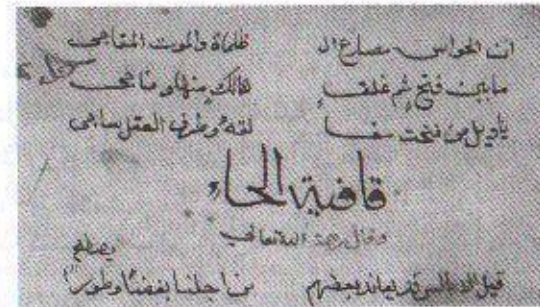 ان الحواس مصارع الـ ظلماة والموت المفاجى
ما بين فتح ثم غلق هالك منها وناجى
يا ويل من فتحت وطرف العقل ساجى
قافية الحاء
وقال رحمه الله تعالى
يصطلح
بعضهم من اجلنا بغضا وطورا